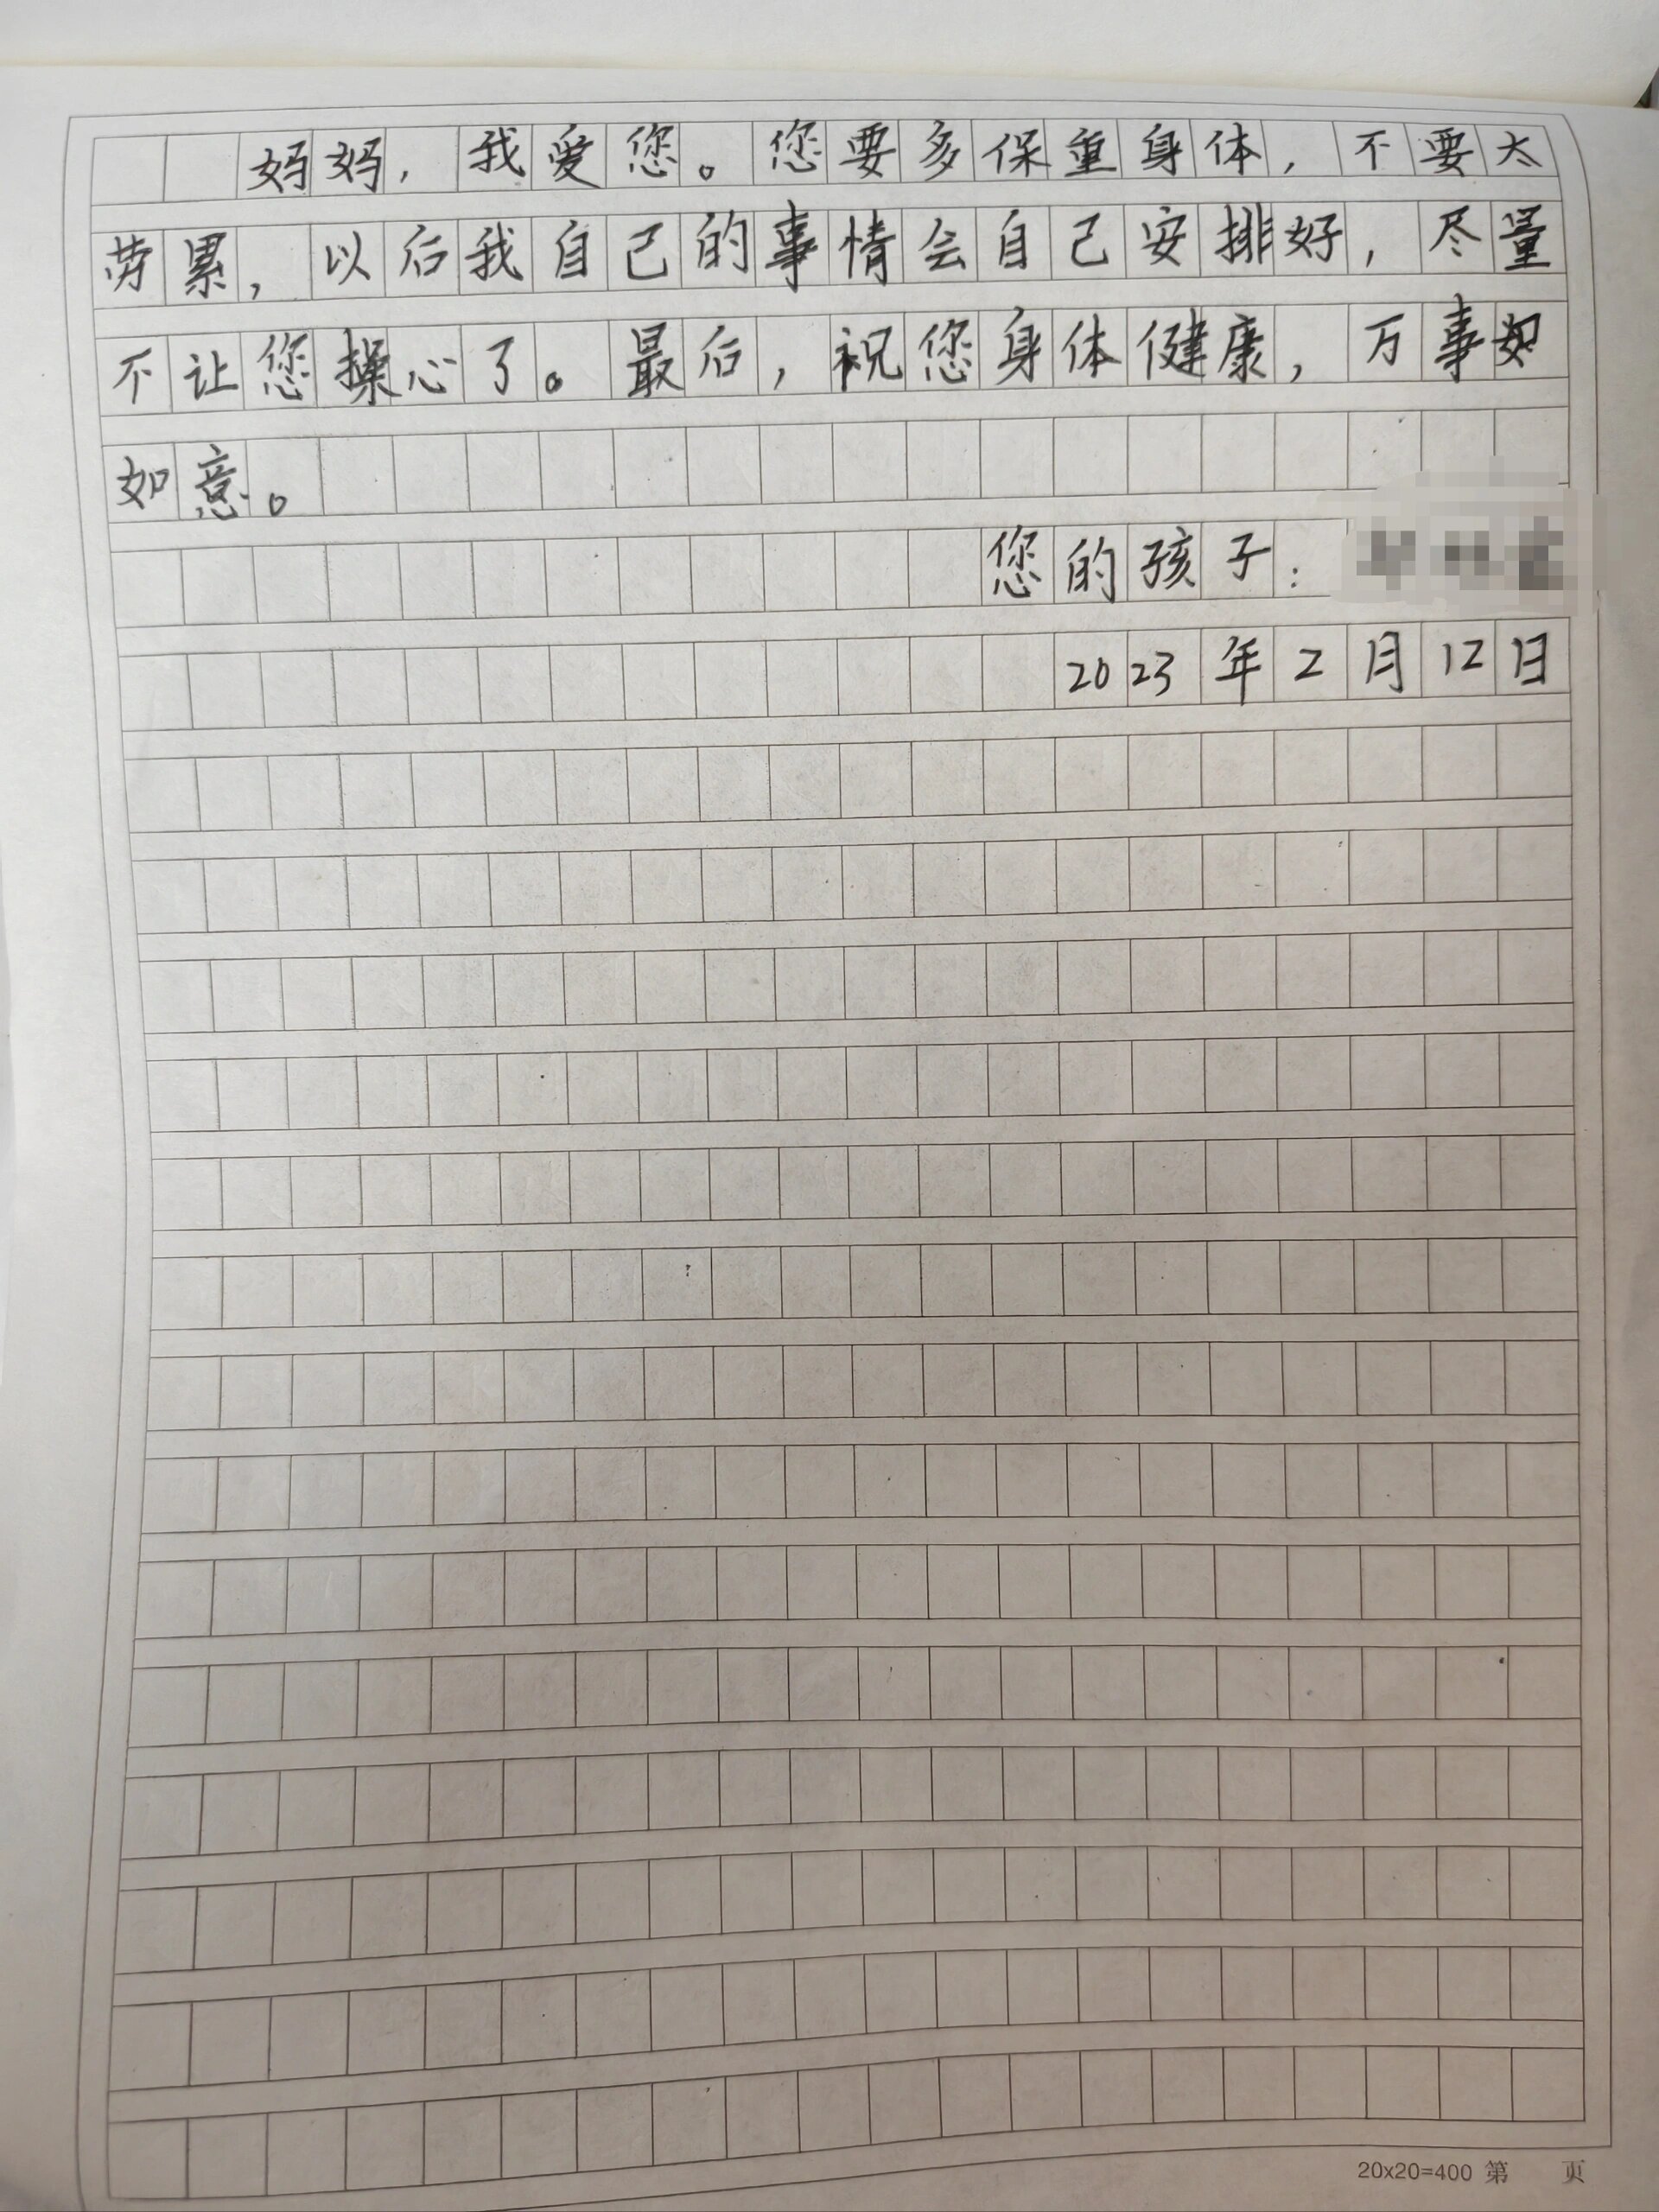 妈妈，我爱您。您要多保重身体，不要太
劳累，以后我自己的事情会自己安排好，尽量
不让您操心了。最后，祝您身体健康，万事
如意。
您的孩子：
2023年2月12日
20x20=400 第 页